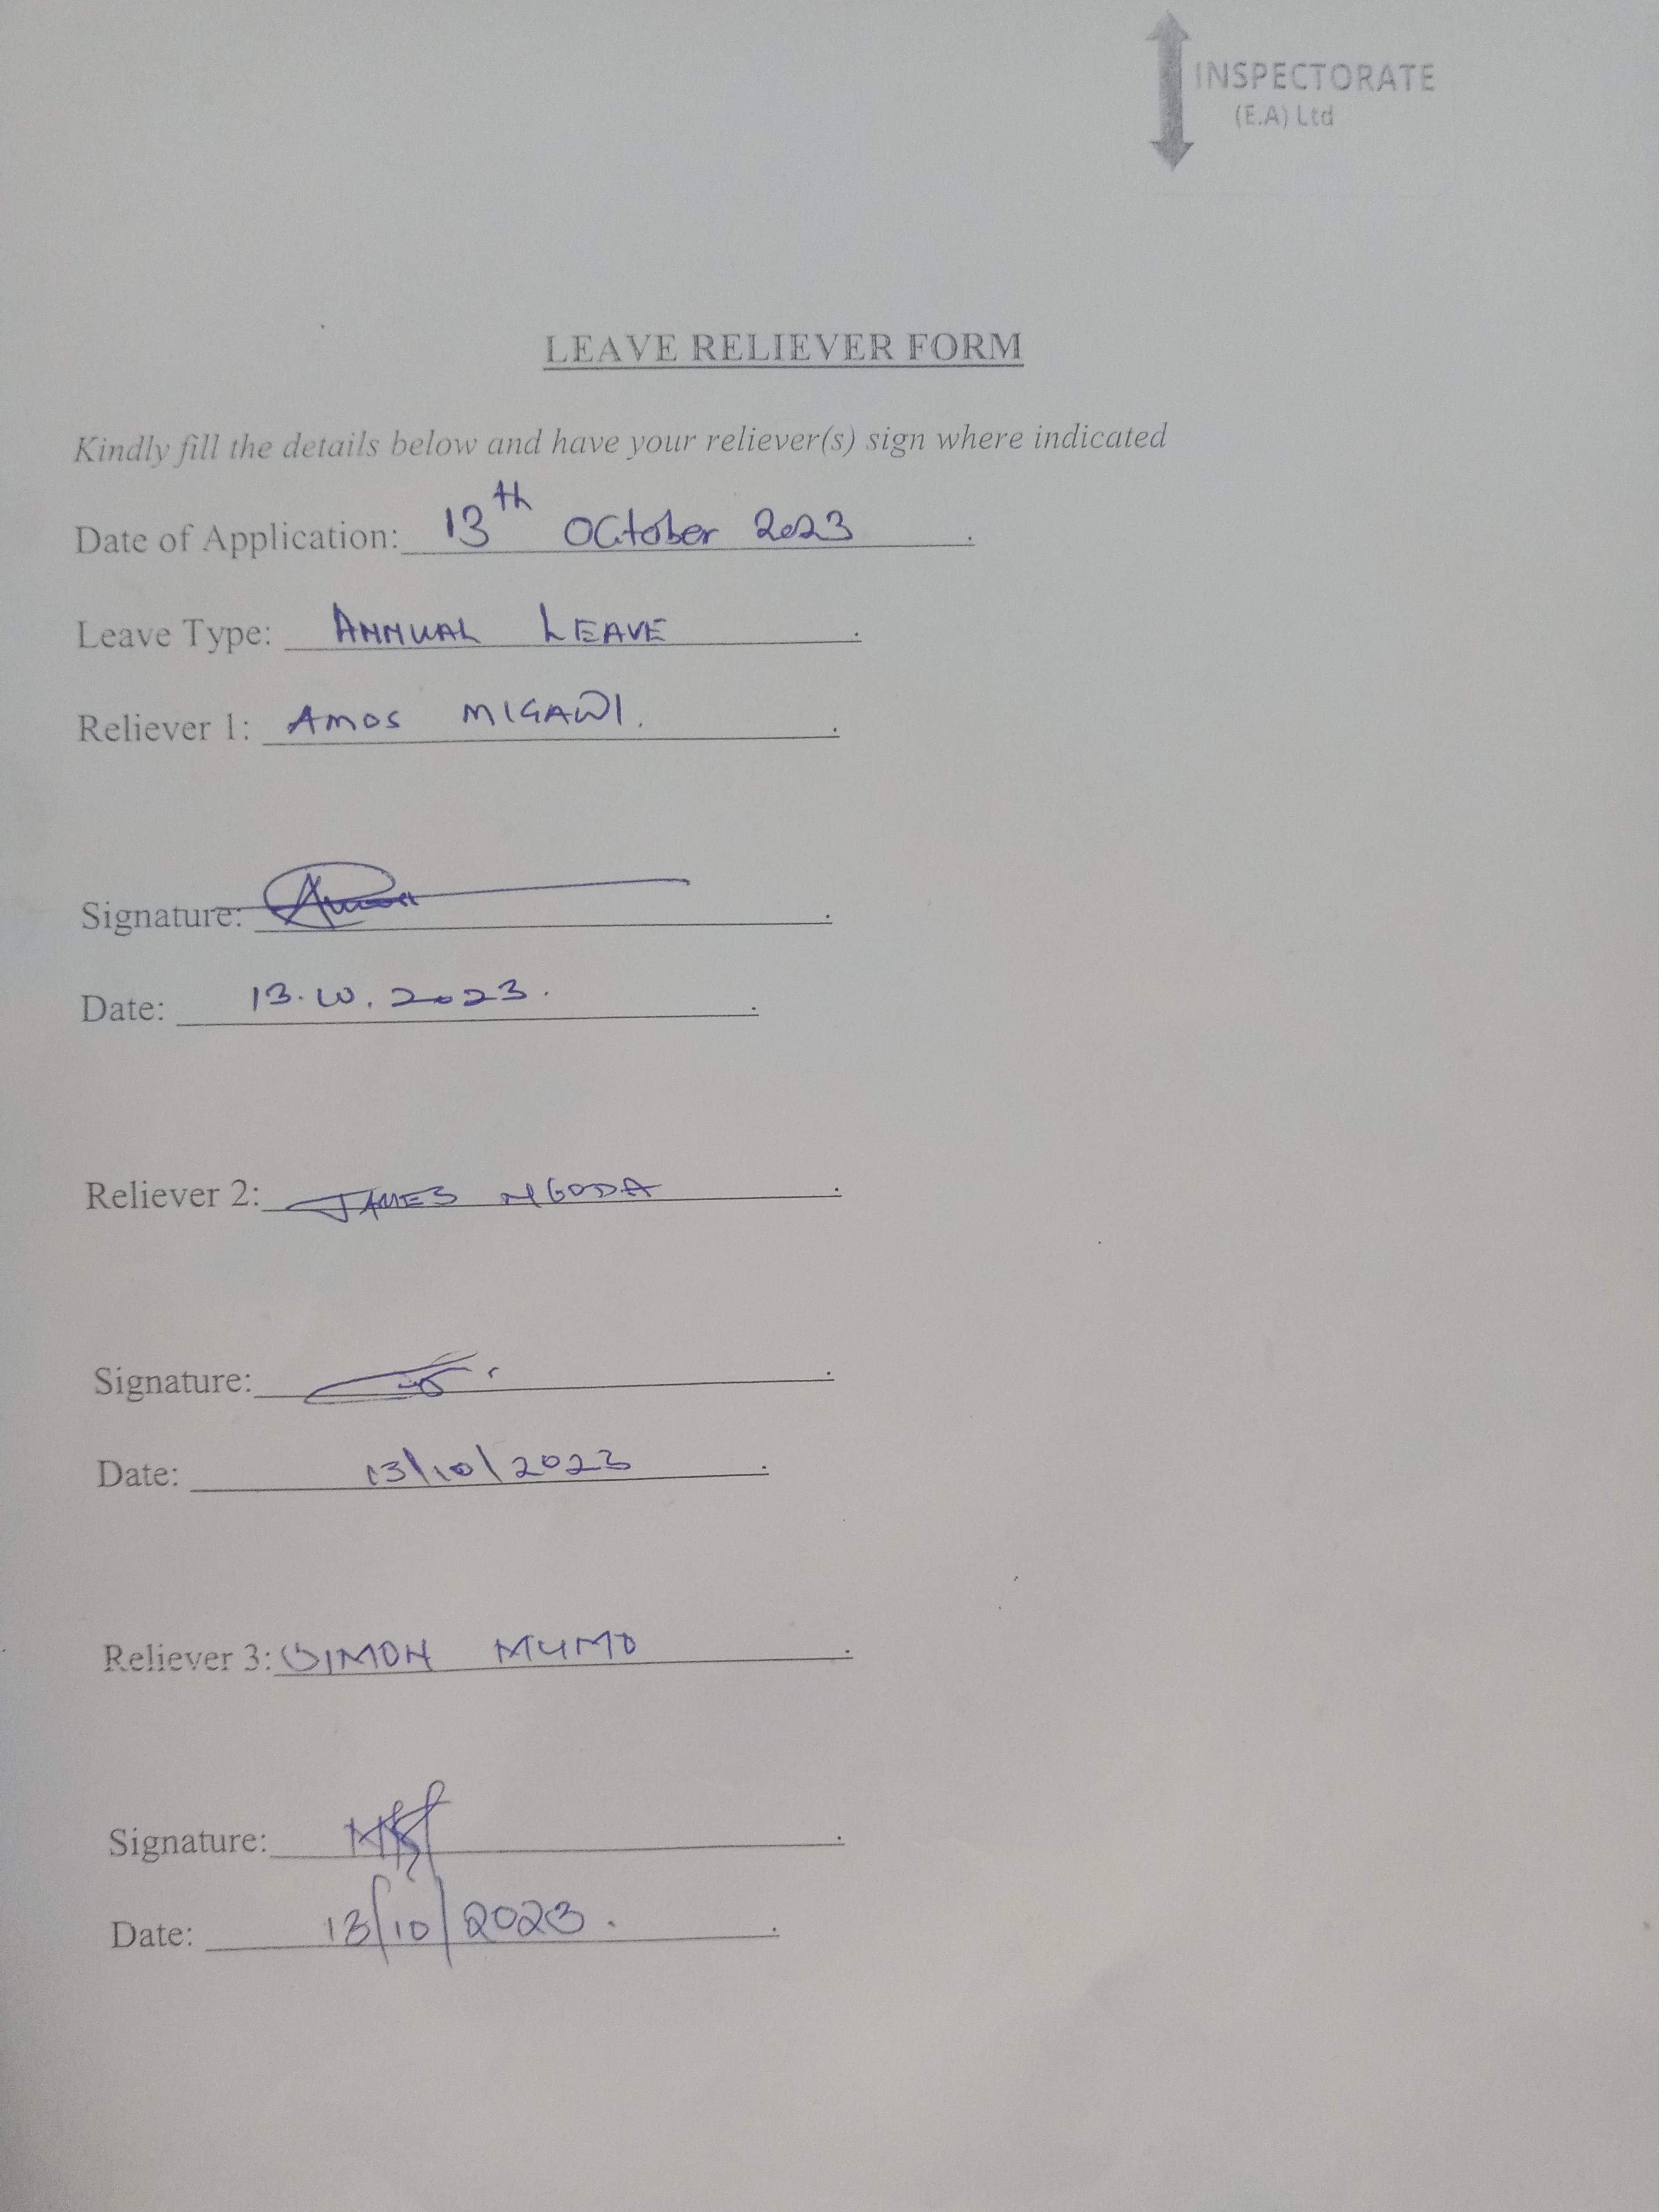 INSPECTORATE
(E.A) Ltd
LEAVE RELIEVER FORM
Kindly fill the details below and have your reliever(s) sign where indicated
Date of Application: 13th October 2023.
Leave Type: ANNUAL LEAVE.
Reliever 1: AMOS MIGAWI.
Signature:
Date: 13.10.2023.
Reliever 2: JAMES NGODA.
Signature:
Date: 13/10/2023.
Reliever 3: SIMON MUMO.
Signature:
Date: 13/10/2023.